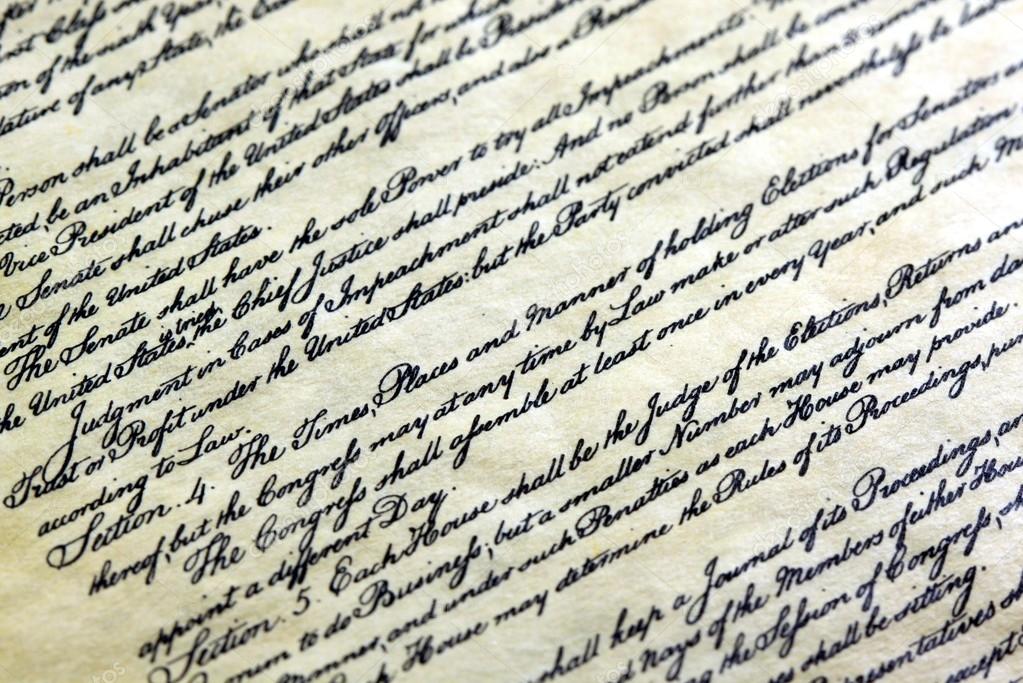 of the United States, the
Person shall be a Senator who shall not
cted, be an Inhabitant of that State for which
Vice President of the United States shall be President
Senate shall chuse their other Officers, and also a President
ent of the United States.
The Senate shall have the sole Power to try all Impeachments.
the United States is tried, the Chief Justice shall preside: And no Person shall be
Judgment in Cases of Impeachment shall not extend further than to removal
Trust or Profit under the United States: but the Party convicted shall nevertheless be
according to Law.
Section. 4. The Times, Places and Manner of holding Elections for Senators
thereof; but the Congress may at any time by Law make or alter such Regulation
The Congress shall assemble at least once in every Year, and such M
appoint a different Day.
Section. 5. Each House shall be the Judge of the Elections, Returns an
orum to do Business; but a smaller Number may adjourn from da
Manner, and under such Penalties as each House may provide.
House may determine the Rules of its Proceedings, pun
shall keep a Journal of its Proceedings, an
d Nays of the Members of either Hou
g the Session of Congress, sh
es shall be sitting.
presentatives sh
except